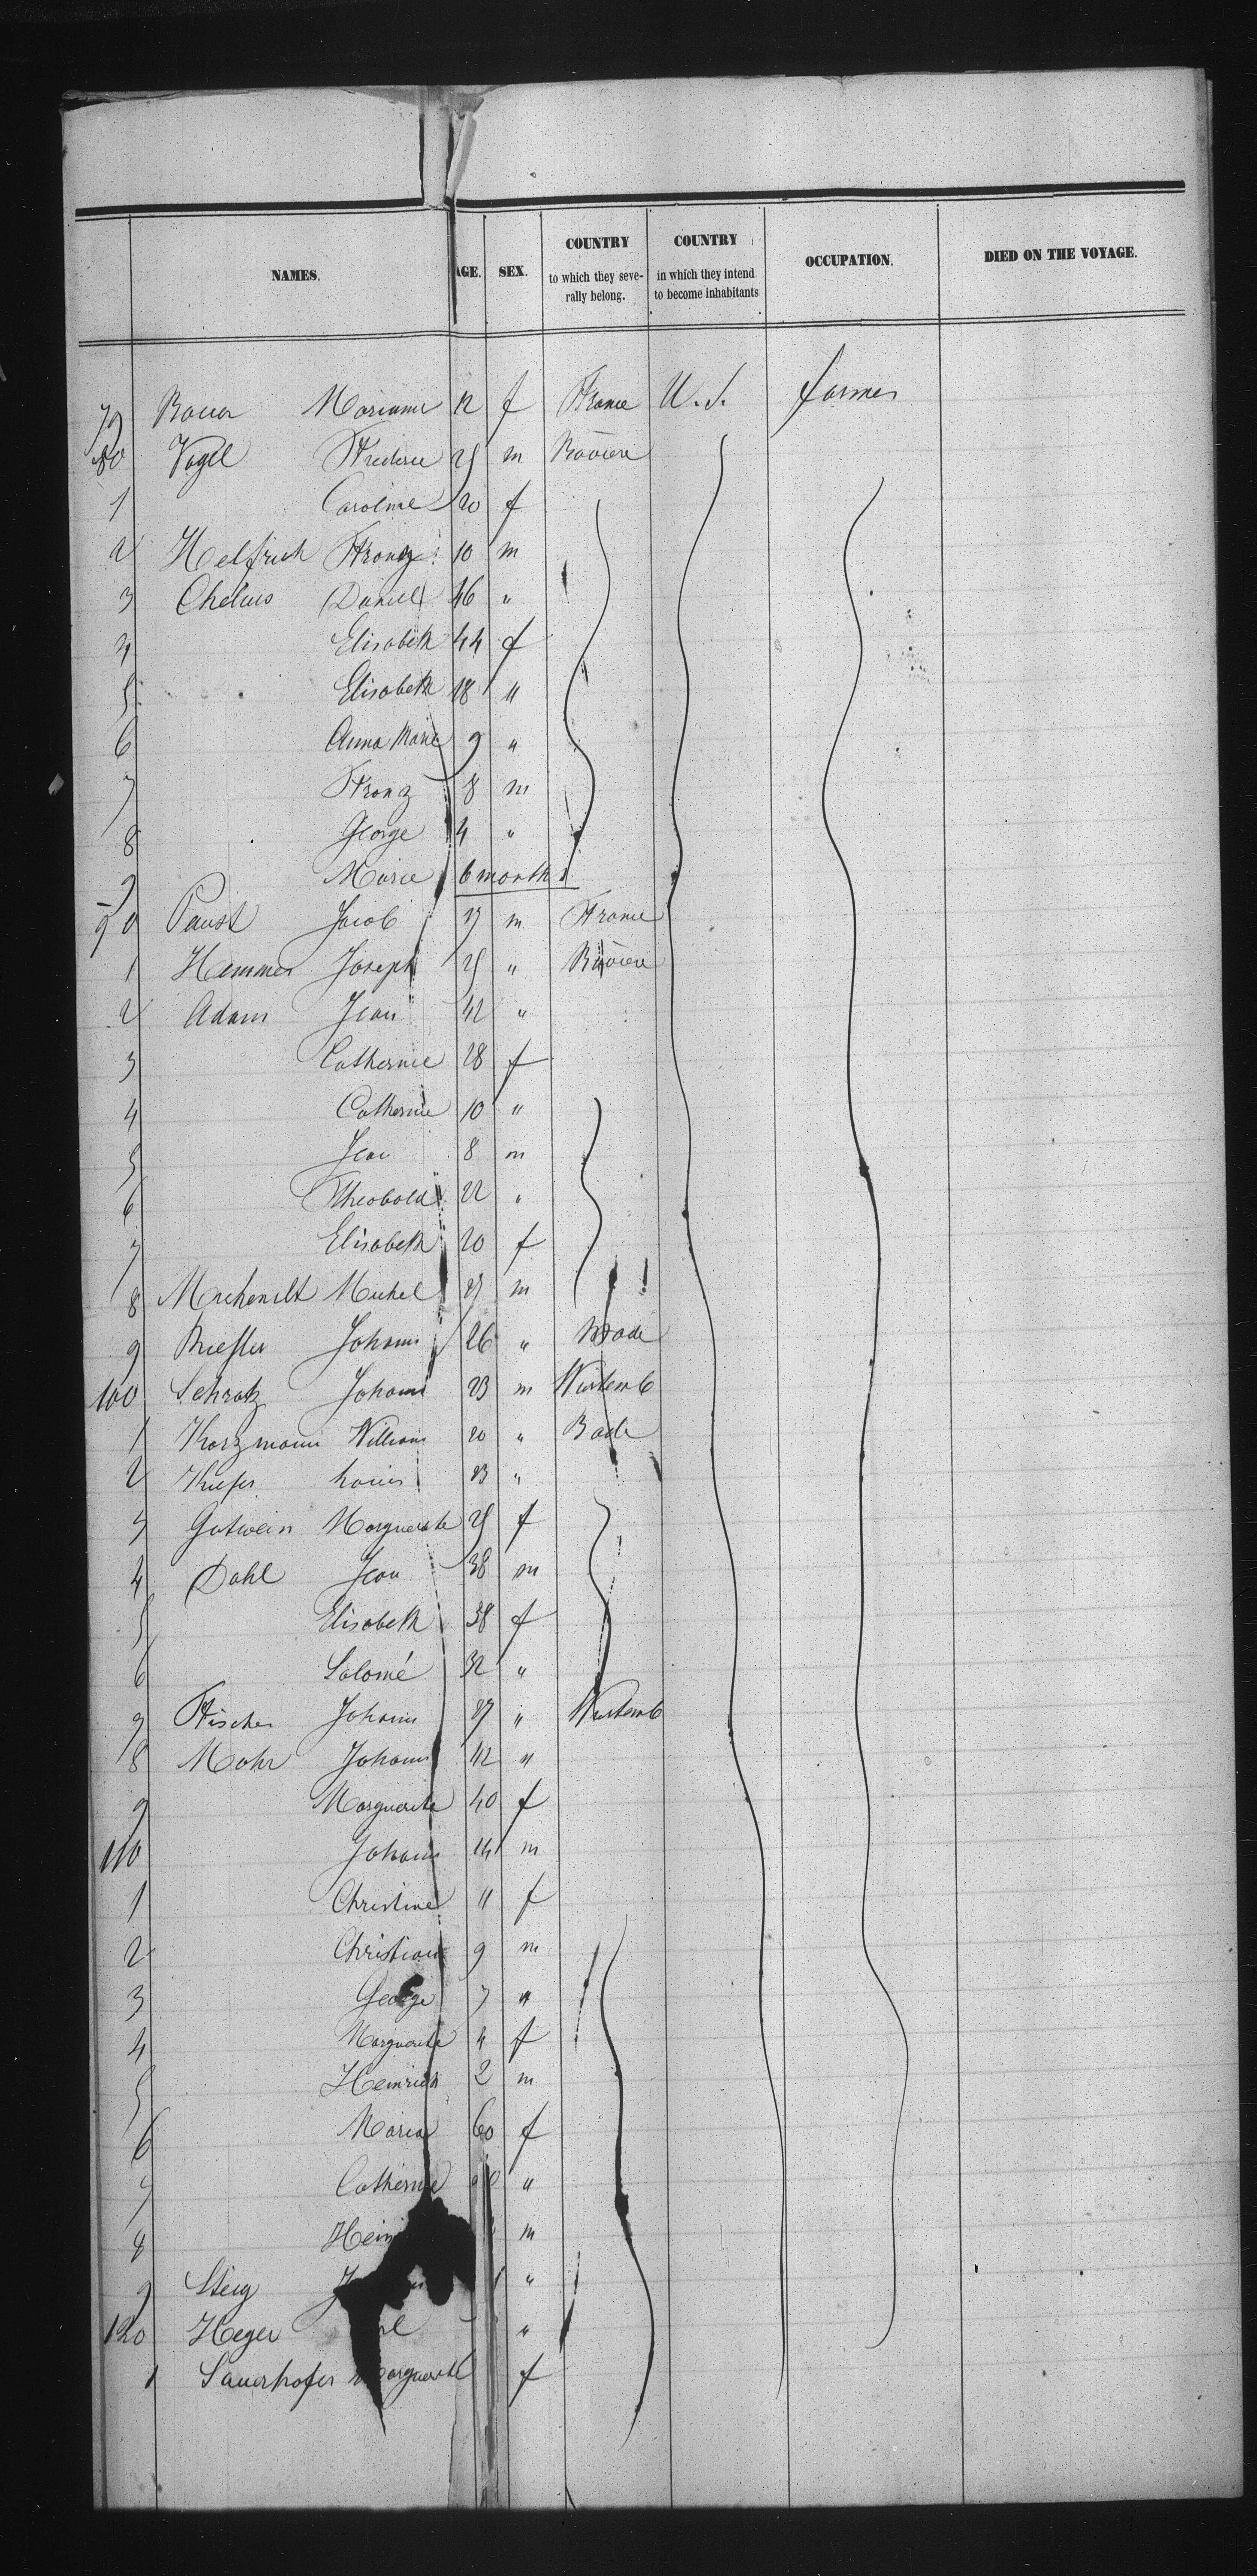 NAMES. AGE. SEX. COUNTRY to which they severally belong. COUNTRY in which they intend to become inhabitants OCCUPATION. DIED ON THE VOYAGE.
79 Mariane 12 f France U.S. farmer
80 Vogel Frederic 25 m Bavière
1 Caroline 20 f
2 Helfrich Franz 10 m
3 Chelius Daniel 46 "
4 Elisabeth 44 f
5 Elisabeth 18 "
6 Anna Marie 9 "
7 Franz 8 m
8 George 4 "
9 Marie 6 months
90 Paust Jacob 27 m France
1 Hammer Joseph 25 " Bavière
2 Adam Jean 42 "
3 Catherine 28 f
4 Catherine 10 "
5 Jean 8 m
6 Theobald 22 "
7 Elisabeth 20 f
8 Michel 27 m
9 Johann 26 " Bade
100 Schratz Johann 23 m Wurtemb
1 Korzmann William 20 " Bade
2 Kiefer Louis 23 "
3 Gutwein Marguerite 25 f
4 Dahl Jean 38 m
5 Elisabeth 38 f
6 Salomé 32 "
7 Fischer Johann 27 " Wurtemb
8 Mohr Johann 42 "
9 Marguerite 40 f
110 Johann 14 m
1 Christine 11 f
2 Christian 9 m
3 George 7 "
4 Marguerite 4 f
5 Heinrich 2 m
6 Maria 60 f
7 Catherine "
8 m
9 Steig "
120 Heger "
1 Sauerhofer Marguerite f